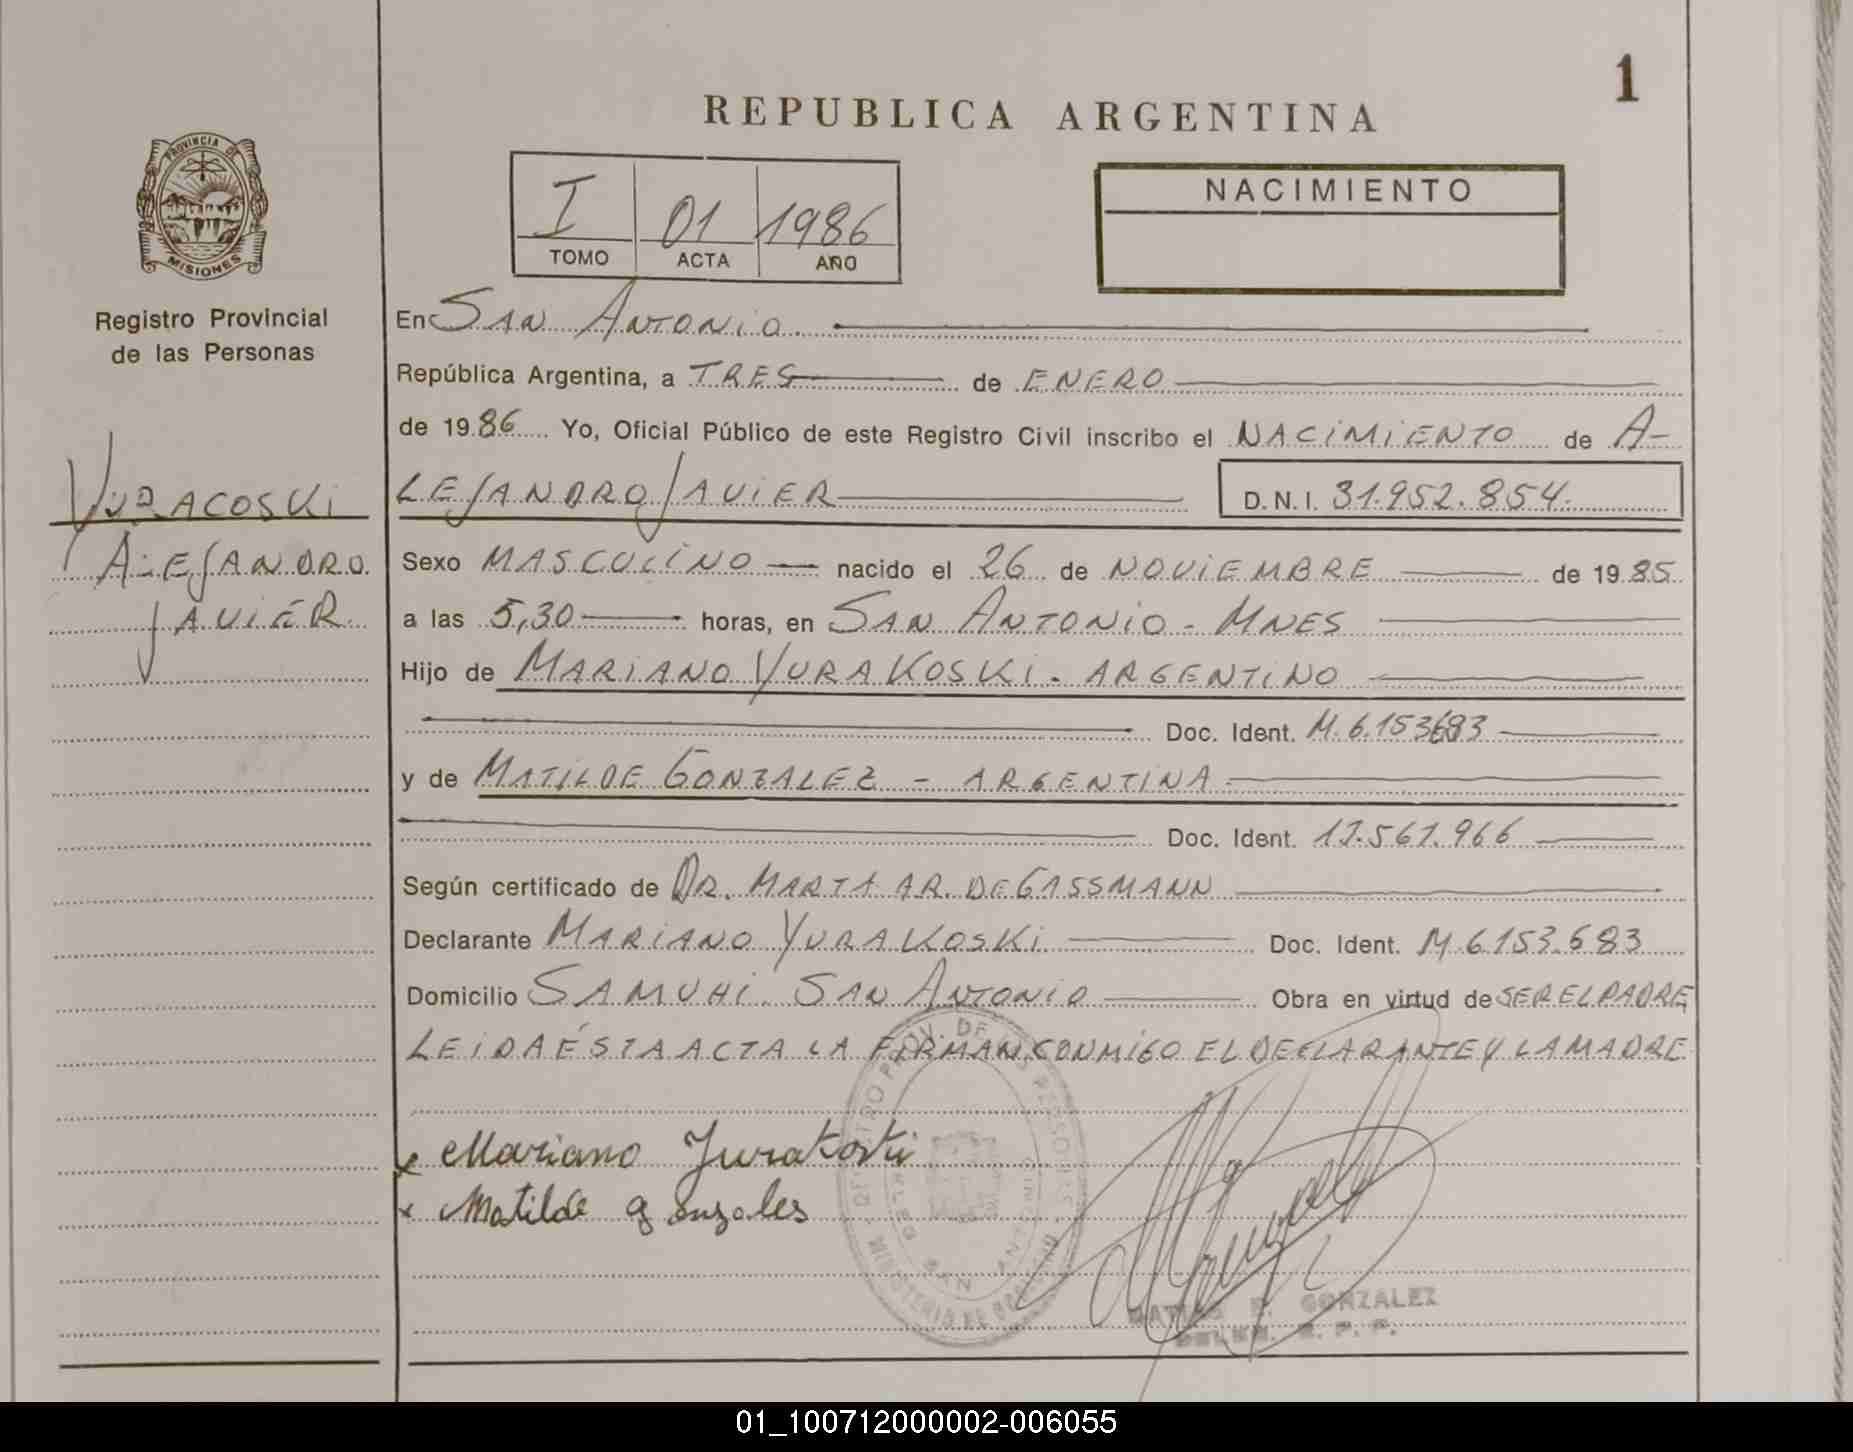 1
REPUBLICA ARGENTINA
PROVINCIA DE
MISIONES
Registro Provincial
de las Personas
I 01 1986
TOMO ACTA AÑO
NACIMIENTO
En SAN ANTONIO.
República Argentina, a TRES de ENERO
de 1986 Yo, Oficial Público de este Registro Civil inscribo el NACIMIENTO de A-
LEJANDRO JAVIER D.N.I. 31.952.854.
YURACOSKI
ALEJANDRO
JAVIER.
Sexo MASCULINO nacido el 26 de NOVIEMBRE de 1985
a las 5,30 horas, en SAN ANTONIO - MNES
Hijo de MARIANO YURAKOSKI - ARGENTINO
Doc. Ident. M.6.153683
y de MATILDE GONZALEZ - ARGENTINA
Doc. Ident. 17.567.966
Según certificado de DR. MARTA AR. DE GASSMANN
Declarante MARIANO YURAKOSKI Doc. Ident. M.6.153.683
Domicilio SAMUHI. SAN ANTONIO Obra en virtud de SER EL PADRE
LEIDA ÉSTA ACTA LA FIRMAN CONMIGO EL DECLARANTE Y LA MADRE
x Mariano Jurakoski
x Matilde gonzales
REGISTRO PROV. DE LAS PERSONAS
MINISTERIO DE GOBIERNO
SAN ANTONIO
E. GONZALEZ
01_100712000002-006055